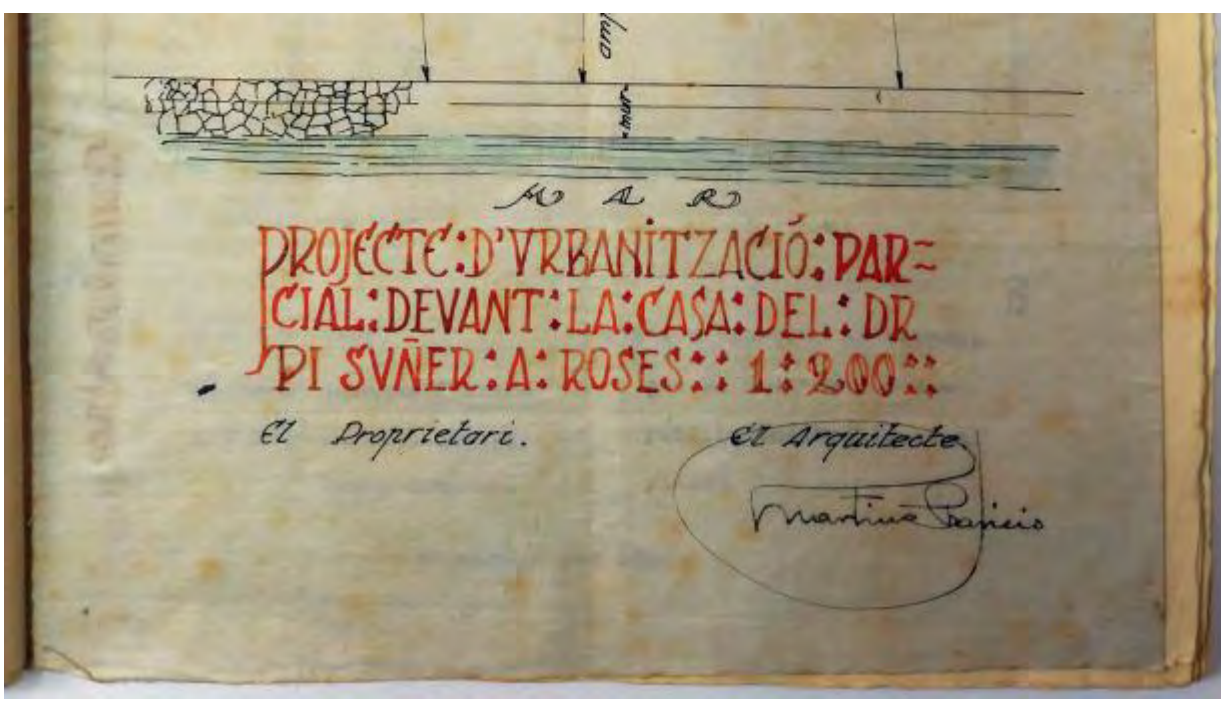 M A R
PROJECTE:D'VRBANITZACIÓ:PAR~
CIAL:DEVANT:LA:CASA:DEL:DR
PI SVÑER:A:ROSES:: 1:200::
El Proprietari.
El Arquitecte
Martinez Paricio